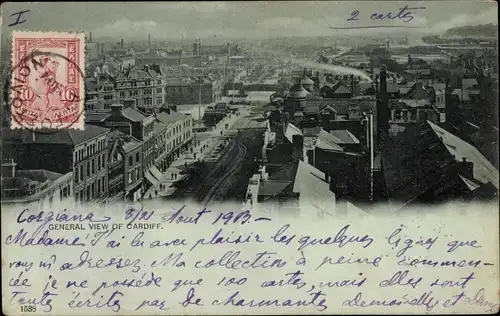 I
2 cartes
Corgiana 8/21 Août 1903.-
GENERAL VIEW OF CARDIFF.
Madame! J'ai lu avec plaisir les quelques lignes que
vous m'adressez. Ma collection à peine commen-
cée je ne possède que 100 cartes, mais elles sont
toutes écrites par de charmantes demoiselles et Dames
1538